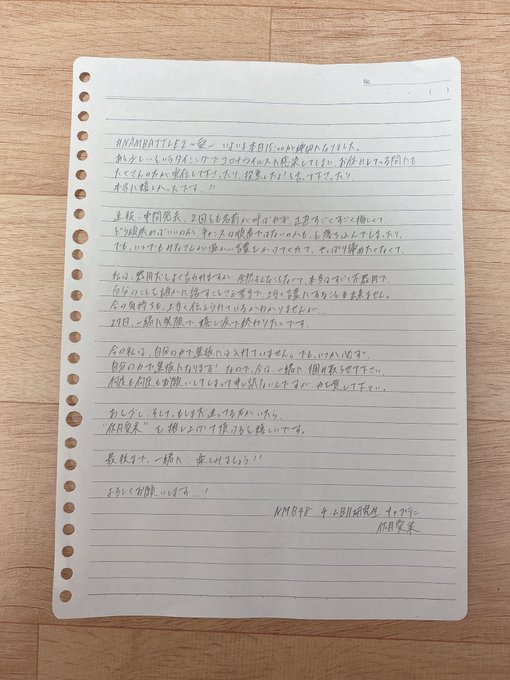 No.
#NAMBATTLE2〜愛〜 いよいよ本日15:00が締切になりました。
あと少しというタイミングでコロナウイルスに感染してしまい お休みしている間にも
たくさんの方が宣伝して下さったり、投票したよ！と言って下さったり、
本当に嬉しかったです…!!
速報、中間発表、2回とも名前が呼ばれず、正直すごくすごく悔しくて
どう頑張ればいいのか、チャンスの順番ではないのかも、と落ち込んでしまったり、
でも、いつでもみなさんが温かい言葉をかけてくれて、やっぱり諦めたくなくて。
私は、器用だとよく言われますが、全然そんなことなくて、本当はすごく不器用で、
自分のことを細かに話すことさえ苦手で、上手く言葉にすることも出来ません。
今の気持ちも、上手く伝えられているかわかりませんが…
29日、一緒に笑顔で、嬉し涙で終わりたいです。
今の私は、自分の力で選抜には入れていません。でも、いつか必ず、
自分の力で選抜になります！なので、今は、一緒に、掴み取らせて下さい。
何度も何度もお願いしてしまって申し訳ないんですが、力を貸して下さい。
あと少し、そして、もしまだ迷ってる方がいたら、
"佐月愛果" を押し上げて頂けると嬉しいです。
最後まで、一緒に、楽しみましょう!!
よろしくお願いします…!
NMB48 チームBII研究生 キャプテン
佐月愛果